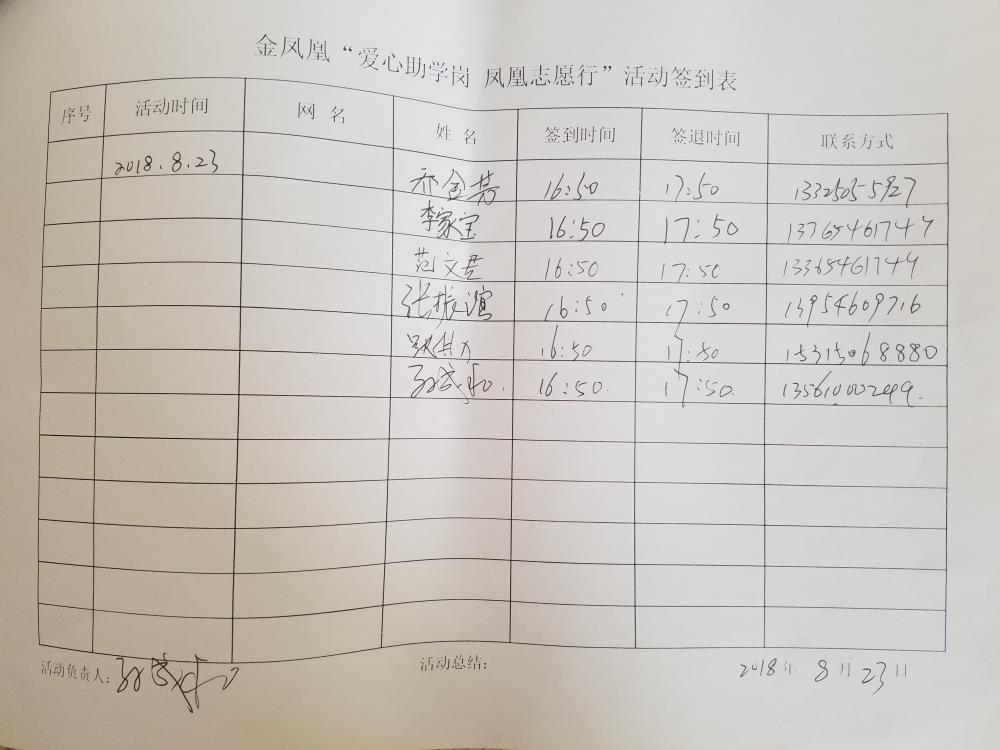 金凤凰“爱心助学岗 凤凰志愿行”活动签到表
序号 活动时间 网 名 姓 名 签到时间 签退时间 联系方式
2018.8.23 乔金芳 16:50 17:50 13325055927
李家宝 16:50 17:50 13765461747
范文芸 16:50 17:50 13365461749
张振谊 16:50 17:50 13954609716
16:50 17:50 15315068880
16:50. 17:50. 13561000249.
活动负责人: 活动总结: 2018年 8月23日